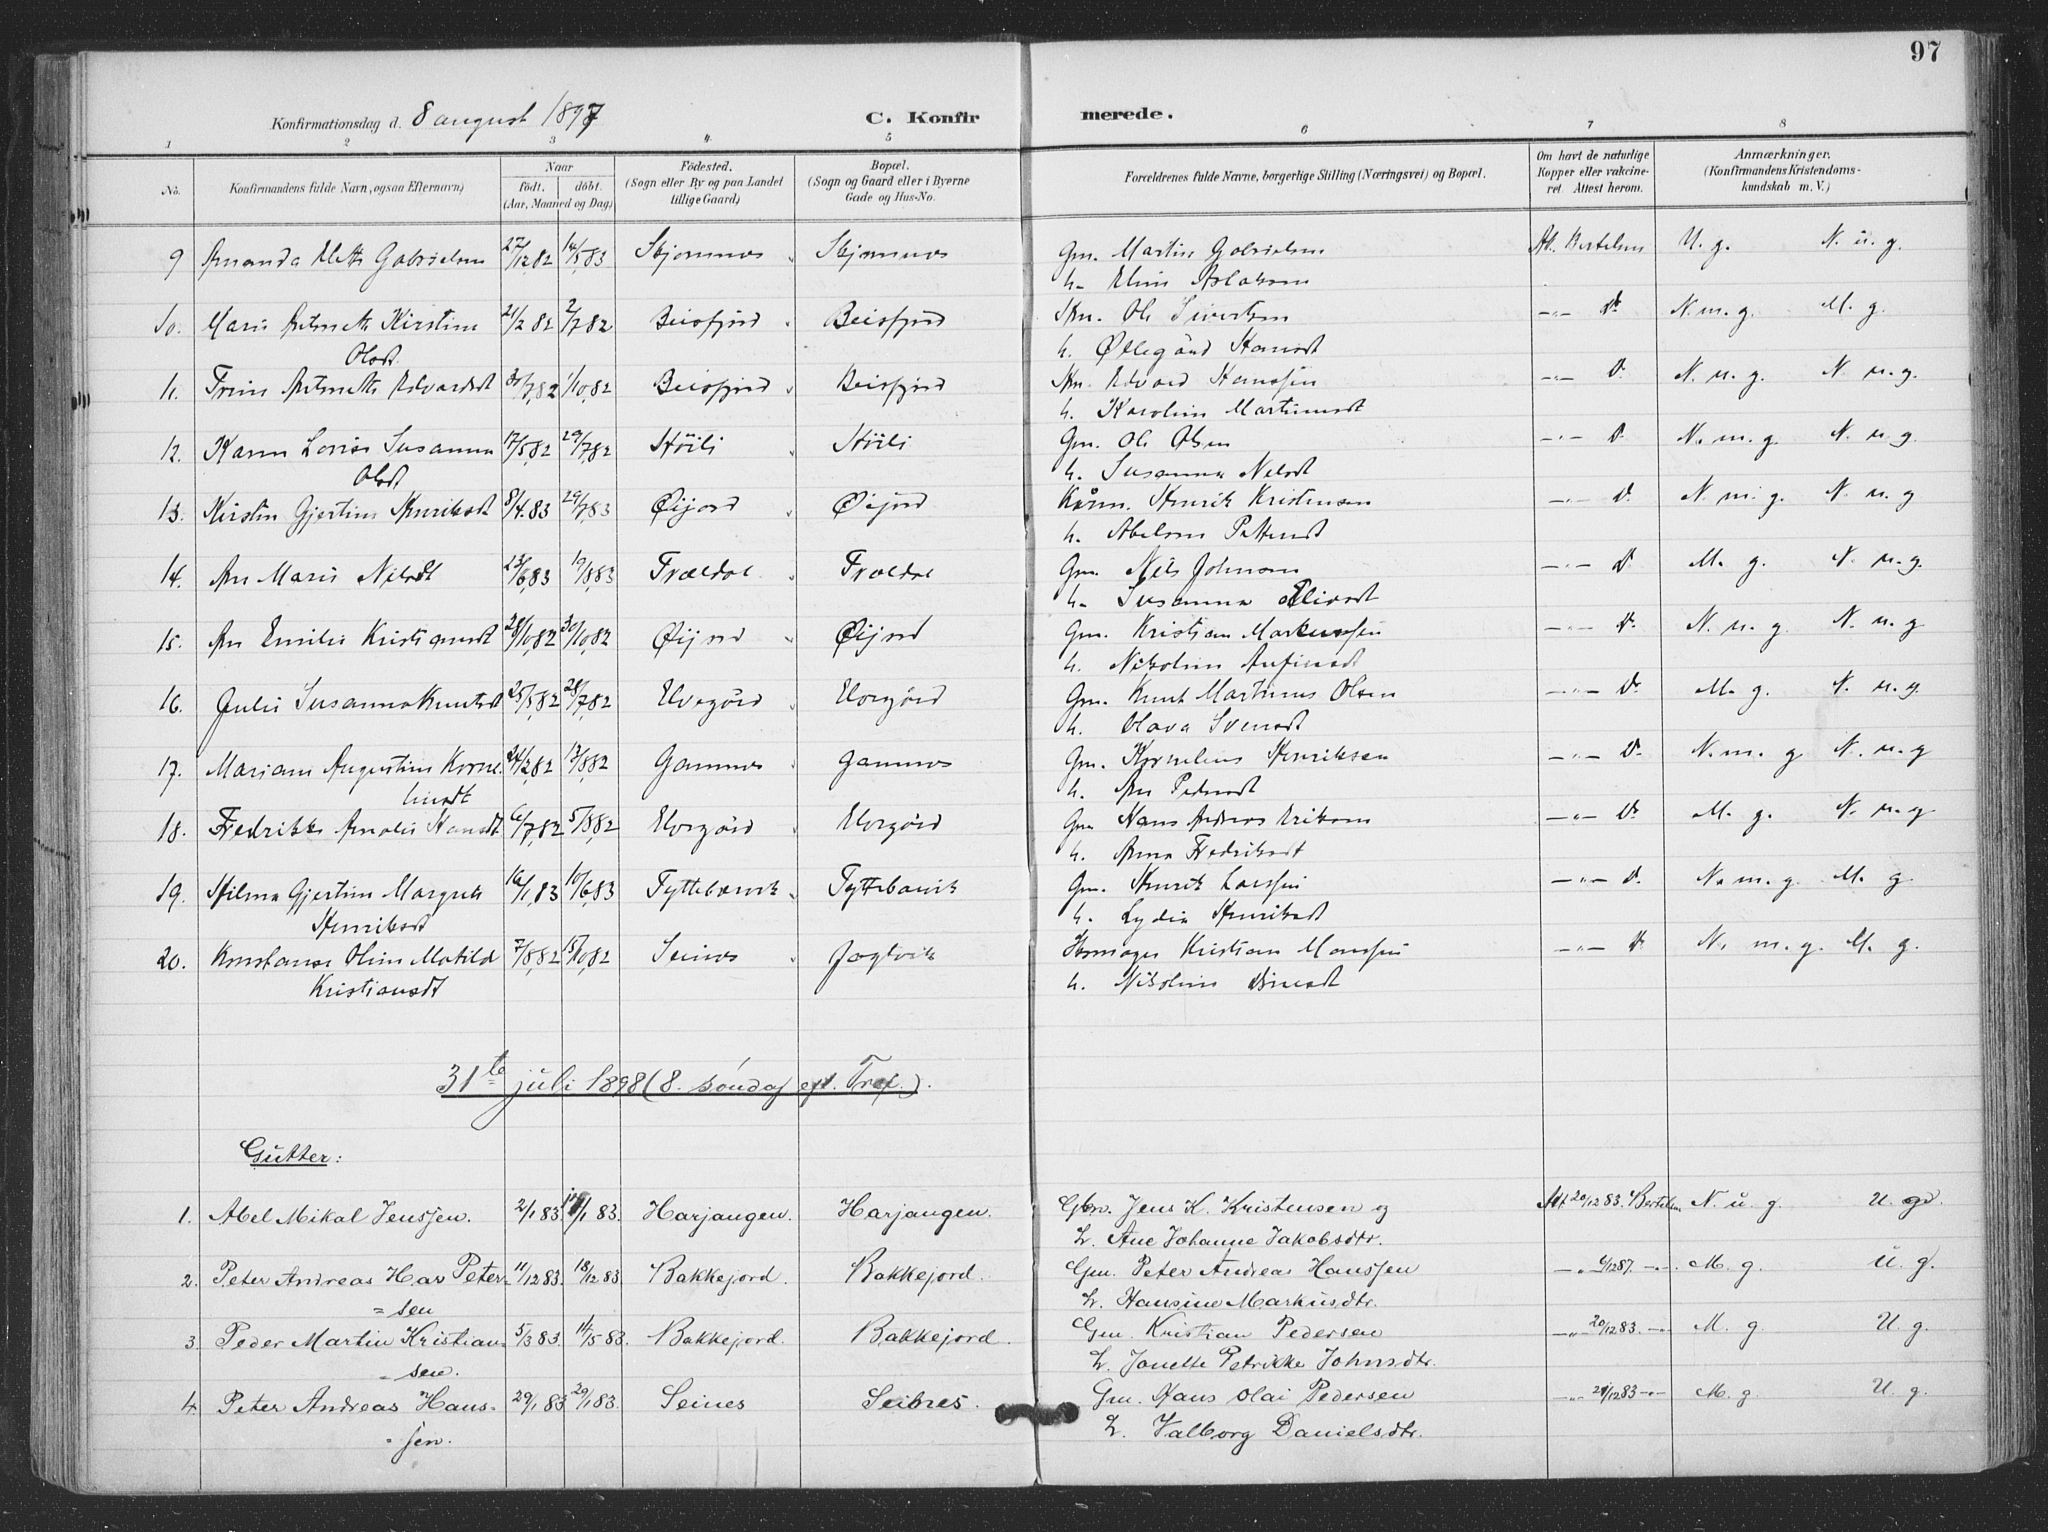 97
Konfirmationsdag d. 8 august 1897
C. Konfir merede.
1 2 3 4. 5 6 7 8
No. Konfirmandens fulde Navn, ogsaa Efternavn)
Naar
født. døbt.
(Aar, Maaned og Dag)
Fødested.
(Sogn eller By og paa Landet
tillige Gaard)
Bopæl.
(Sogn og Gaard eller i Byerne
Gade og Hus-No.
Forældrenes fulde Navne, borgerlige Stilling (Næringsvei) og Bopæl.
Om havt de naturlige
Kopper eller vakcine-
ret. Attest herom.
Anmærkninger.
(Konfirmandens Kristendoms-
kundskab m. V.)
9 Amanda Gabrielsen 27/12 82 14/5 83 Skjomnes Skjomnes Gm. Martin Gabrielsen At. Bertelsen U. g. N. u. g.
h. Aslaksen
10. Marie Kirstine 21/2 82 2/7 82 Beisfjord Beisfjord Ole Sivertsen —"— Do N. m. g. M. g.
Olsdt. h.
11. Edvardsdt 30/7 82 1/10 82 Beisfjord Beisfjord Edvard Hanssen —"— D. N. u. g. N. u. g.
h. Karolin
12. Karen Lovise Susanna 17/5 82 29/7 82 Gm. Ole Olsen —"— D. N. m. g. N. u. g.
Olsdt h. Susanna Nilsdt
13. Kirstin Gjertine Henriksdt 8/4 83 29/7 83 Øijord Øijord Henrik Kristensen —"— D. N. m. g. N. u. g
h.
14. Ane Marie Nilsdt 23/6 83 19/8 83 Trældal Trældal Gm. Nils Johnsen —"— D. M. g. N. u. g.
h. Susanna
15. Ane Emilie Kristiansdt 28/10 82 30/10 82 Øijord Øijord Gm. Kristian Markussen —"— D. N. u. g. N. u. g
h. Nikolina
16. Julie Susanna Knutsdt 25/5 82 28/7 82 Elvegård Elvegård Gm. Knut Martinus Olsen —"— D. M. g. N. u. g.
h. Olava Svensdt
17. Mariane Augustine Korne- 24/2 82 13/8 82 Gamnes Gamnes Gm. Kornelius Henriksen —"— D. N. m. g N. u. g
liusdt h. Ane Pedersdt
18. Fredrikke Amalie Hansdt 6/7 82 5/8 82 Elvegård Elvegård Gm Hans Andreas Eriksen —"— D. M. g. N. u. g
h. Anna Fredriksdt
19. Hilma Gjertine Margrete 16/1 83 10/6 83 Tyttebærvik Tyttebærvik Gm. Henrik Larssen —"— D. N. m. g. M. g.
Henriksdt h. Lydia Henriksdt
20. Konstanse Oline Matilde 7/8 82 15/10 82 Seines Kristian Monssen —"— D. N. m. g. M. g.
Kristiansdt h. Nikoline
31te juli 1898 (8. søndag eft. Tref.).
Gutter:
1. Abel Mikal Jenssen. 2/1 83. 83. Harjangen. Harjangen. Gbr. Jens K. Kristensen og At. 20/12 83. Bertelsen N. u. g. U. gd.
h. Ane Johanne Jakobsdtr.
2. Peter Andreas Peter- 11/12 83. 18/12 83. Bakkejord. Bakkejord. Gm. Peter Andreas Hanssen —"— 6/12 87. —"— M. g. U. g.
= sen h. Hansine Markusdtr.
3. Peder Martin Kristian- 5/3 83. 14/5 83. Bakkejord. Bakkejord. Gm. Kristian Pedersen —"— 20/12 83. —"— M. g U. g.
= sen. h. Jonette Petrikke Johnsdtr.
4. Peter Andreas Hans- 29/1 83 29/1 83. Seines Seines. Gm. Hans Olai Pedersen —"— 29/12 83 —"— M. g. U. g.
= sen. h. Valborg Danielsdtr.